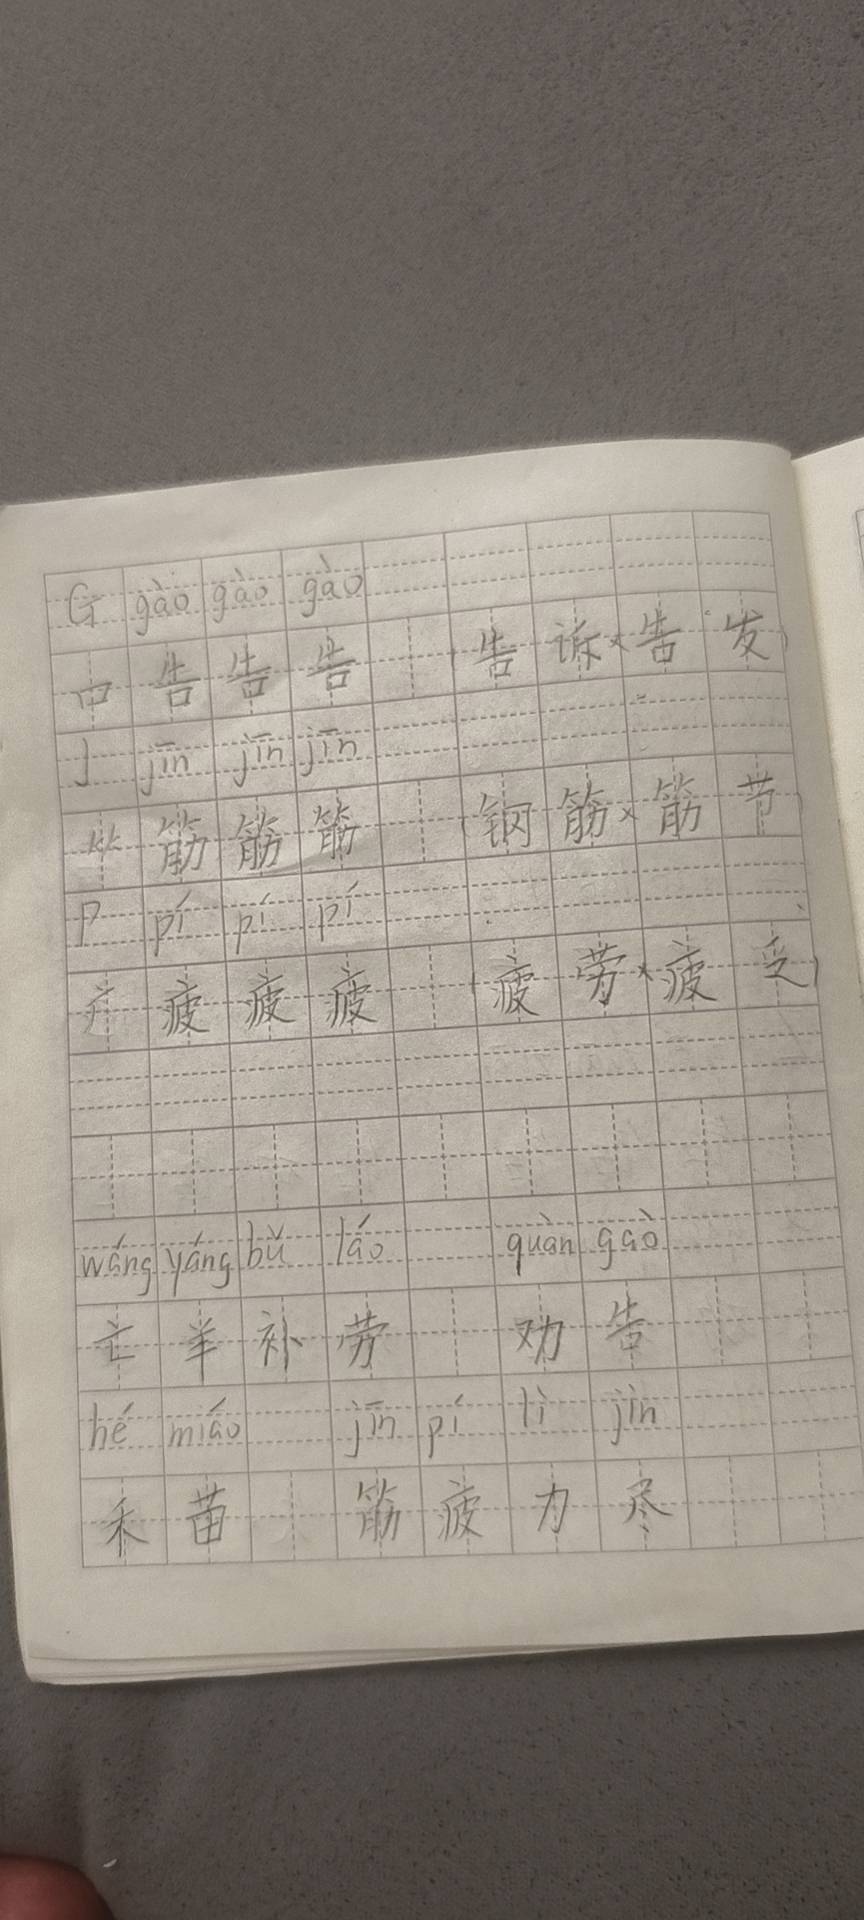 G gào gào gào
口 告 告 告 (告 诉)(告 发)
J jīn jīn jīn
⺮ 筋 筋 筋 (钢 筋)(筋 节)
P pí pí pí
疒 疲 疲 疲 (疲 劳)(疲 乏)
wáng yáng bǔ láo quàn gào
亡 羊 补 劳 劝 告
hé miáo jīn pí lì jìn
禾 苗 筋 疲 力 尽